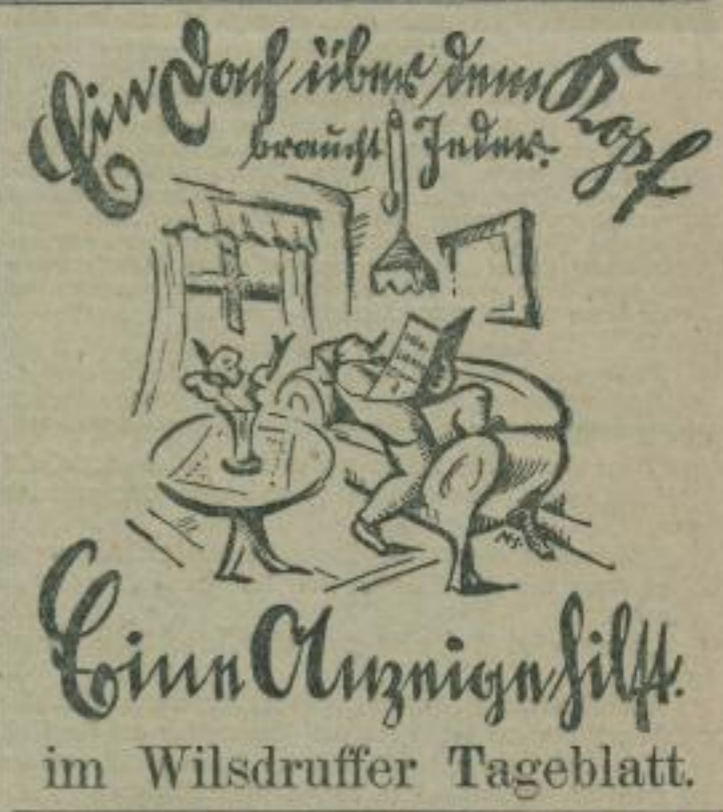 Ein Dach über dem Kopf
braucht Jeder.
Eine Anzeige hilft.
im Wilsdruffer Tageblatt.